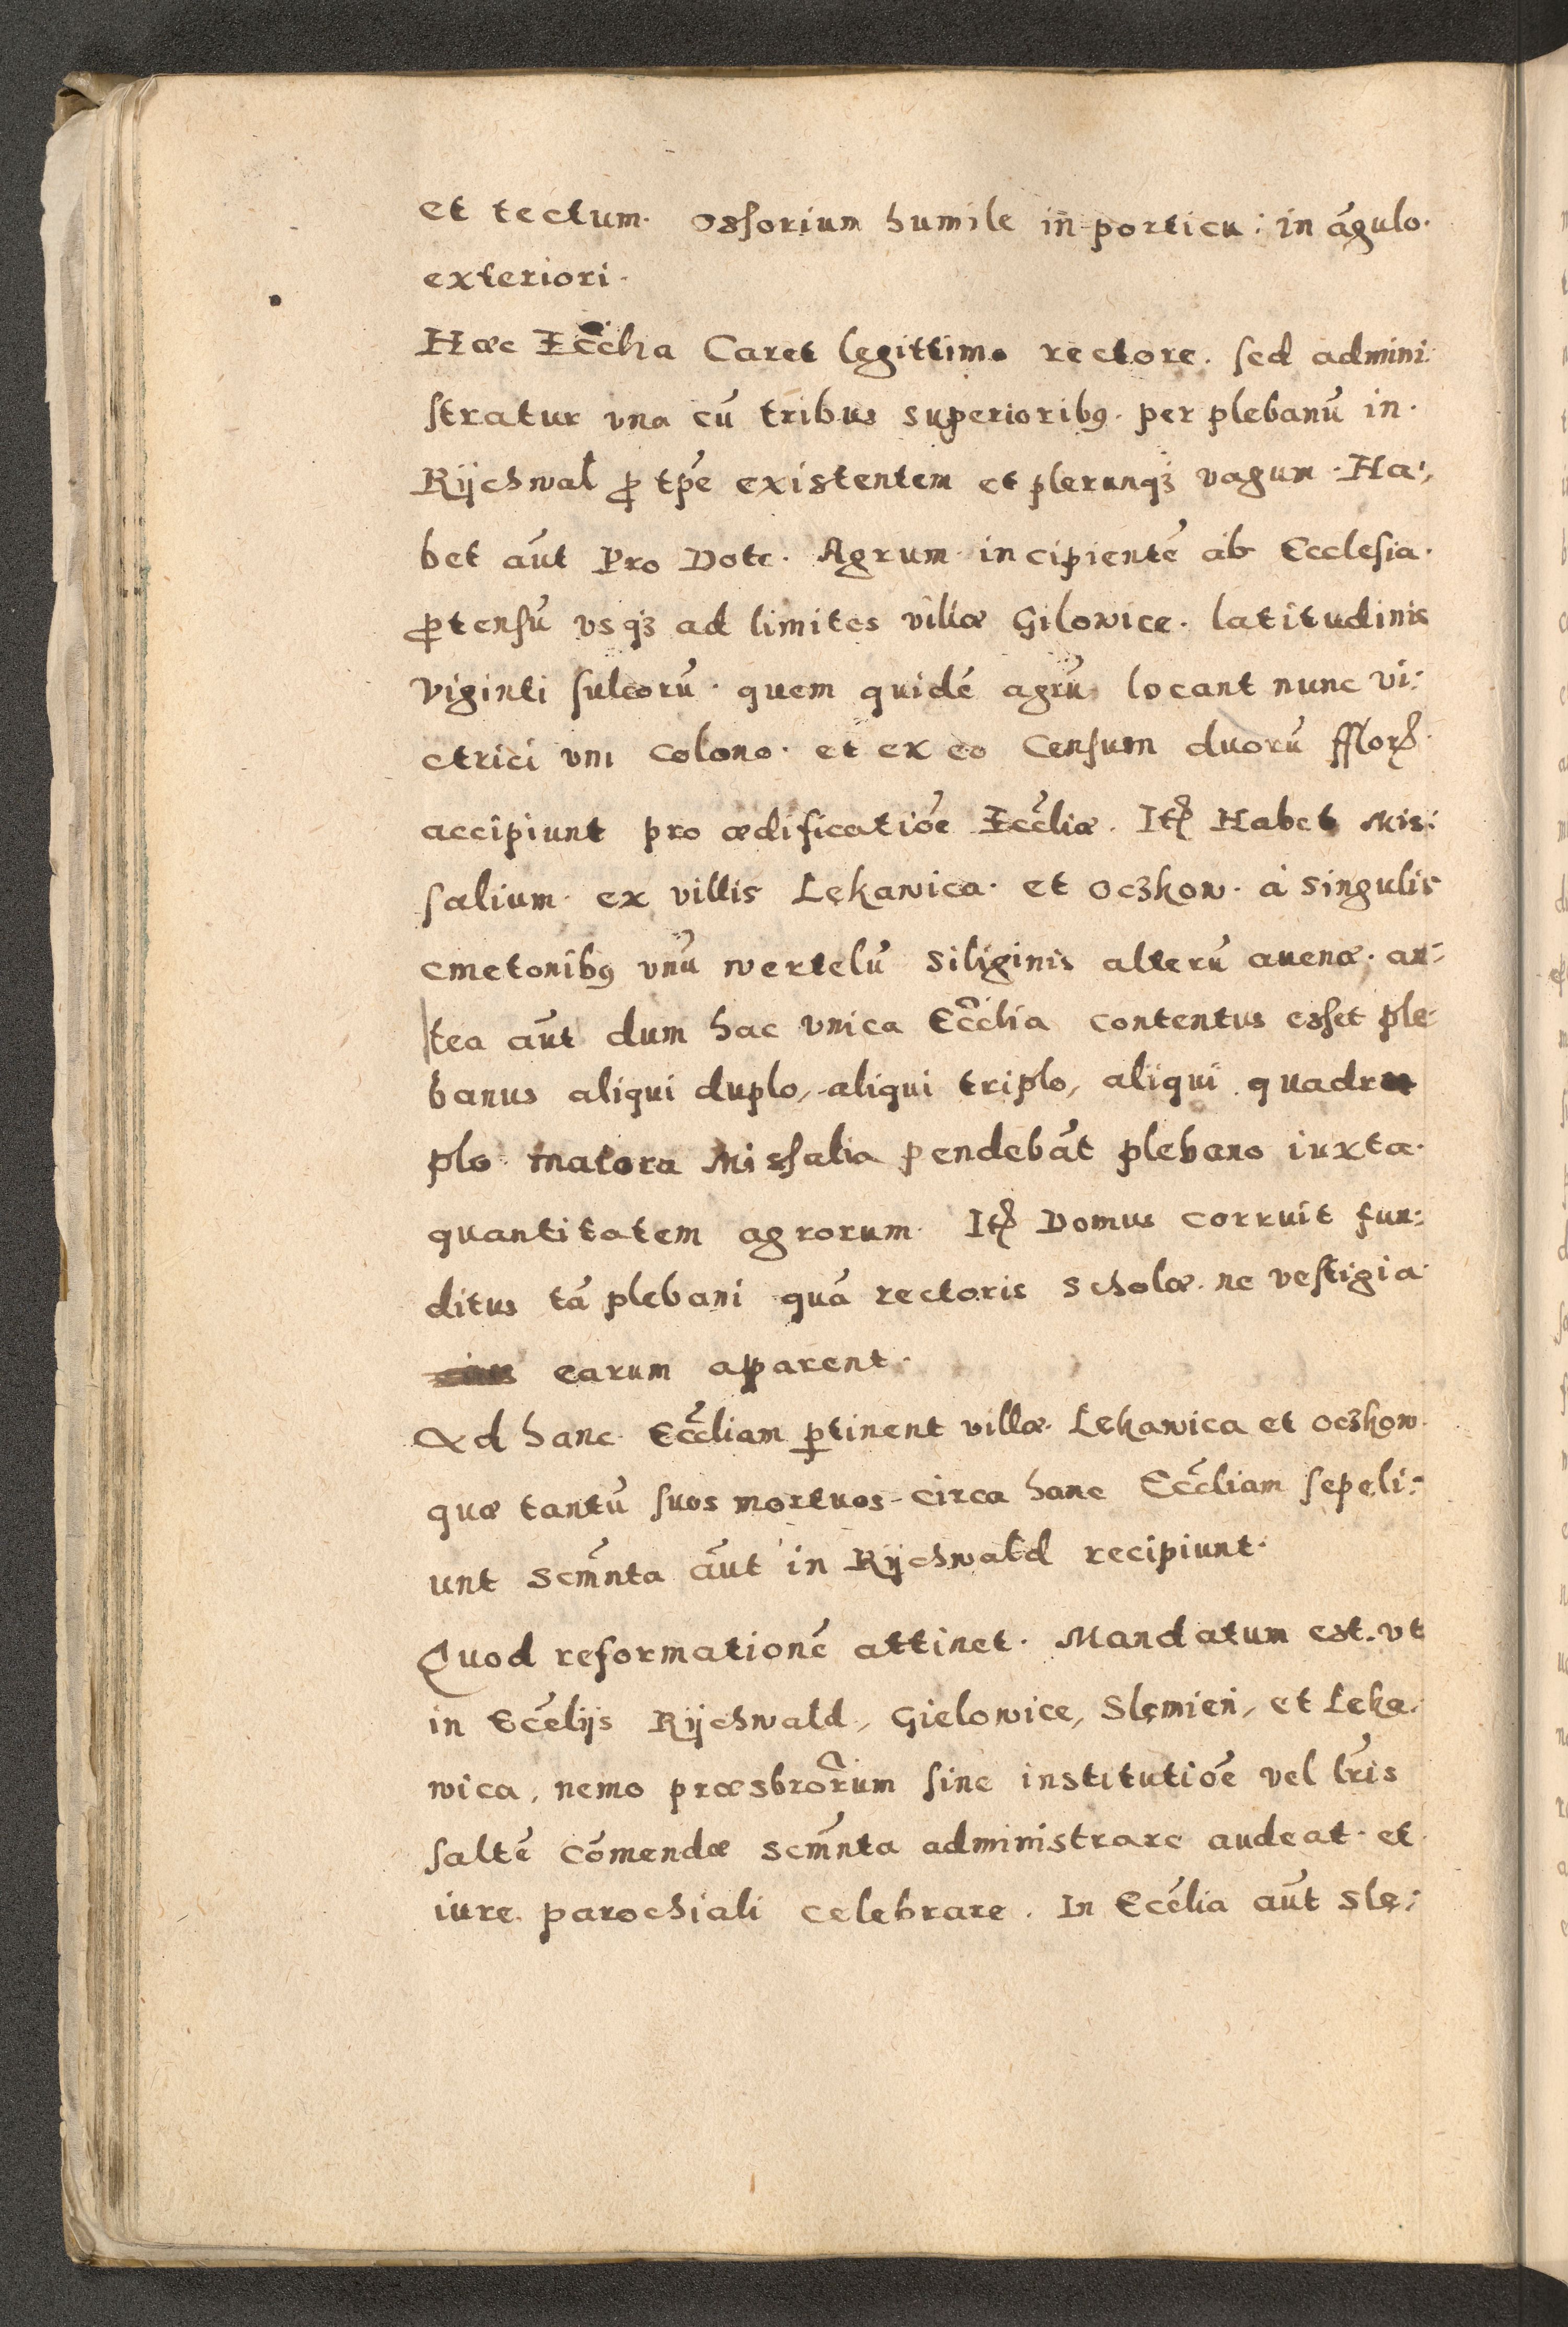 et tectum. Ossorium humile in porticu: in āgulo.
exteriori.
Hæc Ecc̄lia Caret legittimo rectore. sed admini:
stratur vna cū tribus superioribꝯ. per plebanū in.
Rÿchwal ꝓ tp̄e existentem et plerunqꝫ vagum. Ha:
bet aūt Pro Dote. Agrum incipientē ab Ecclesia.
ꝓtensū vsqꝫ ad limites villæ Gilowice. latitudinis
viginti sulcorū. quem quidē agrū locant nunc vi:
ctrici vni colono. et ex eo Censum duorū fflorꝭ.
accipiunt pro ædificatiōe Ecc̄liæ. Itꝭ Habet Mis:
salium. ex villis Lękawica. et Oczkow. à singulis
cmetonibꝯ vnū wertelū siliginis alterū auenæ. an:
tea aūt dum hac vnica Ecc̄lia contentus esset ple:
banus aliqui duplo, aliqui triplo, aliqui quadru
plo maiora Missalia pendebāt plebano iuxta.
quantitatem agrorum. Itꝭ Domus corruit fun:
ditus tā plebani quā rectoris scholæ. ne vestigia
earum aparent.
Ad hanc. Ecc̄liam ꝑtinent villæ. Lękawica et Oczkow.
quæ tantū suos mortuos circa hanc Ecc̄liam sepeli:
unt scm̄nta aūt in Rÿchwałd recipiunt.
Quod reformationē attinet. Mandatum est. vt
in Ecc̄lijs Rÿchwałd, Gielowice, Slęmień, et Lęka:
wica, nemo præsbrōrum sine institutiōe vel lr̄is
saltē cōmendæ scm̄nta administrare audeat. et
iure parochiali celebrare. In Ecc̄lia aūt Slę: